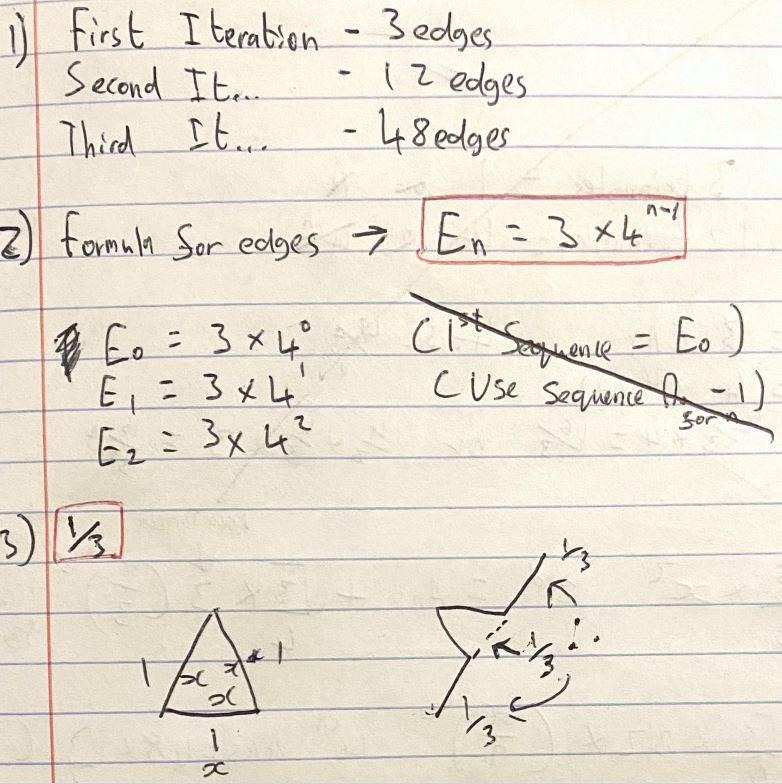 1) First Iteration - 3 edges
Second It... - 12 edges
Third It... - 48 edges
2) Formula for edges → Eₙ = 3 × 4ⁿ⁻¹
E₀ = 3 × 4⁰ (1ˢᵗ Sequence = E₀)
E₁ = 3 × 4¹ (Use Sequence n - 1)
for n
E₂ = 3 × 4²
3) 1/3
1/3
1 x x 1
x
1/3
1
1/3
x